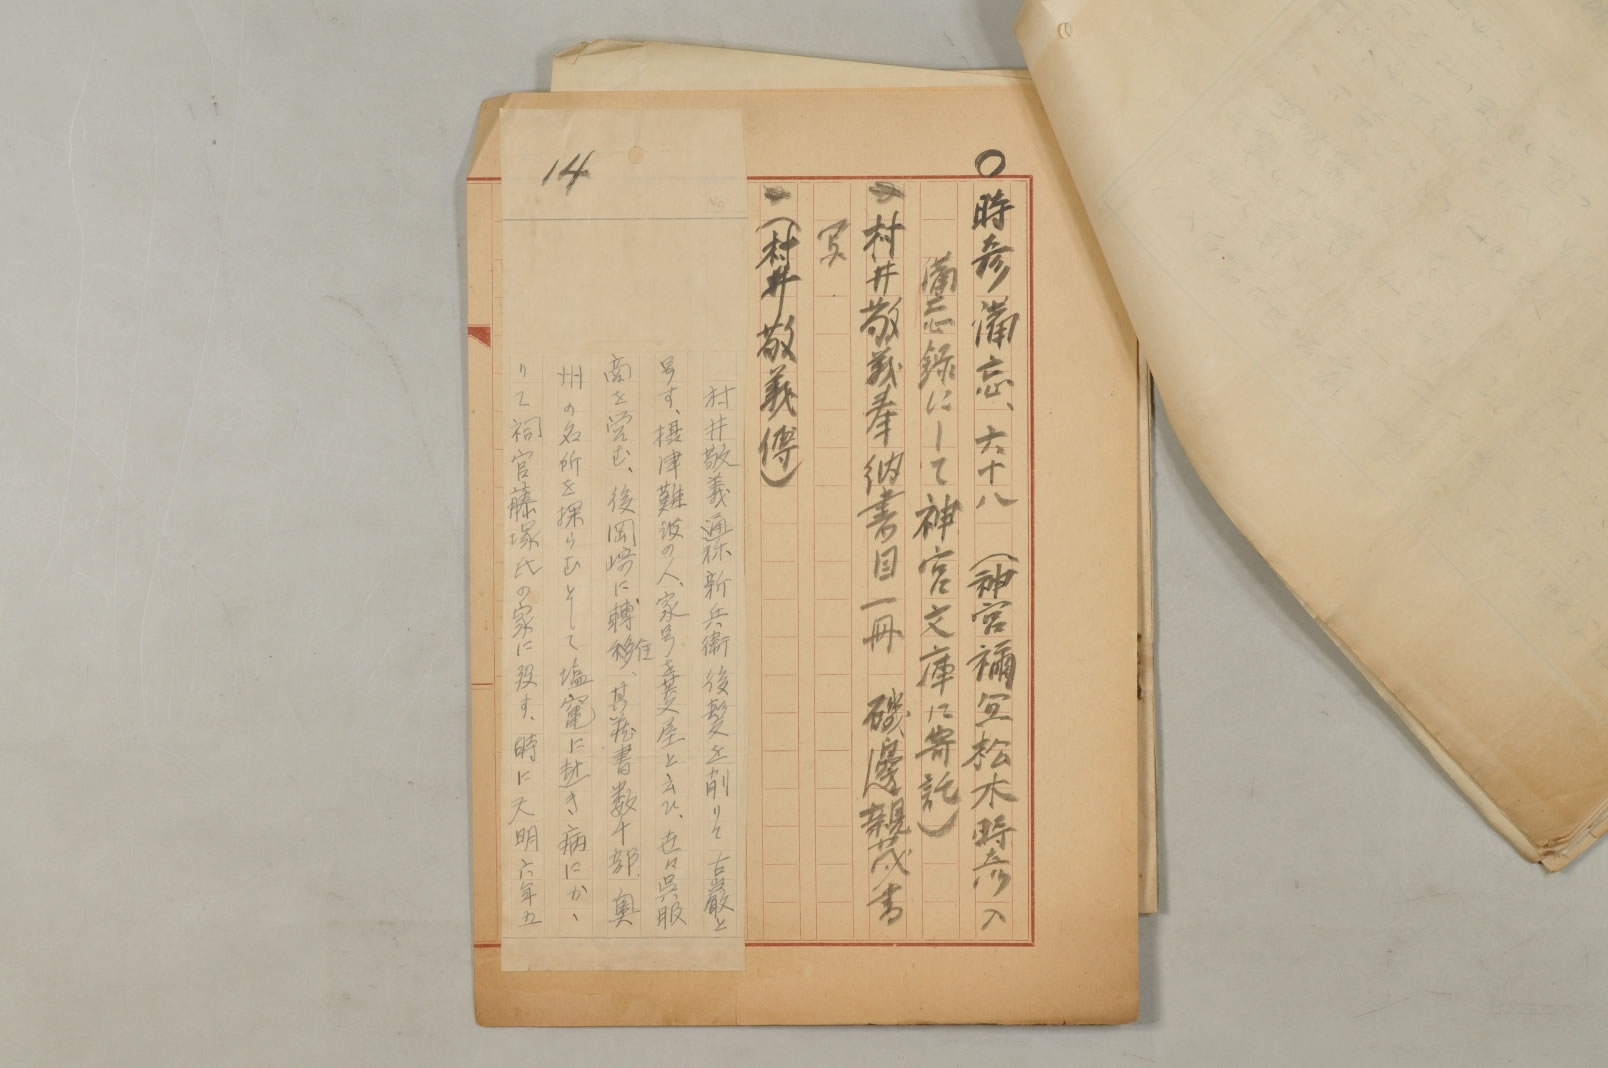 ○時彦備忘、六十八　（神宮禰宜松木時彦ノ
備忘録にして神宮文庫に寄託）
村井敬義奉納書目一冊　磯邊親茂書
写
（村井敬義傳）
14
No
村井敬義通称新兵衛後髪を削りて古巖と
号す、摂津難波の人、家号を菱屋と云ひ、世々呉服
商を営む、後岡崎に轉移住、其蔵書数千部、奥
州の名所を探らむとして塩竈に赴き病にかゝ
りて祠官藤塚氏の家に歿す、時に天明六年五